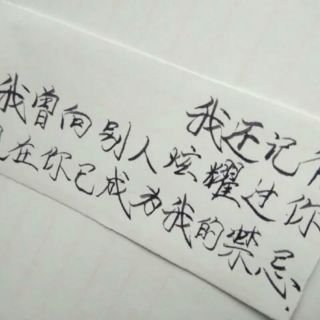 我还记
我曾向别人炫耀过你
在你已成为我的禁忌.